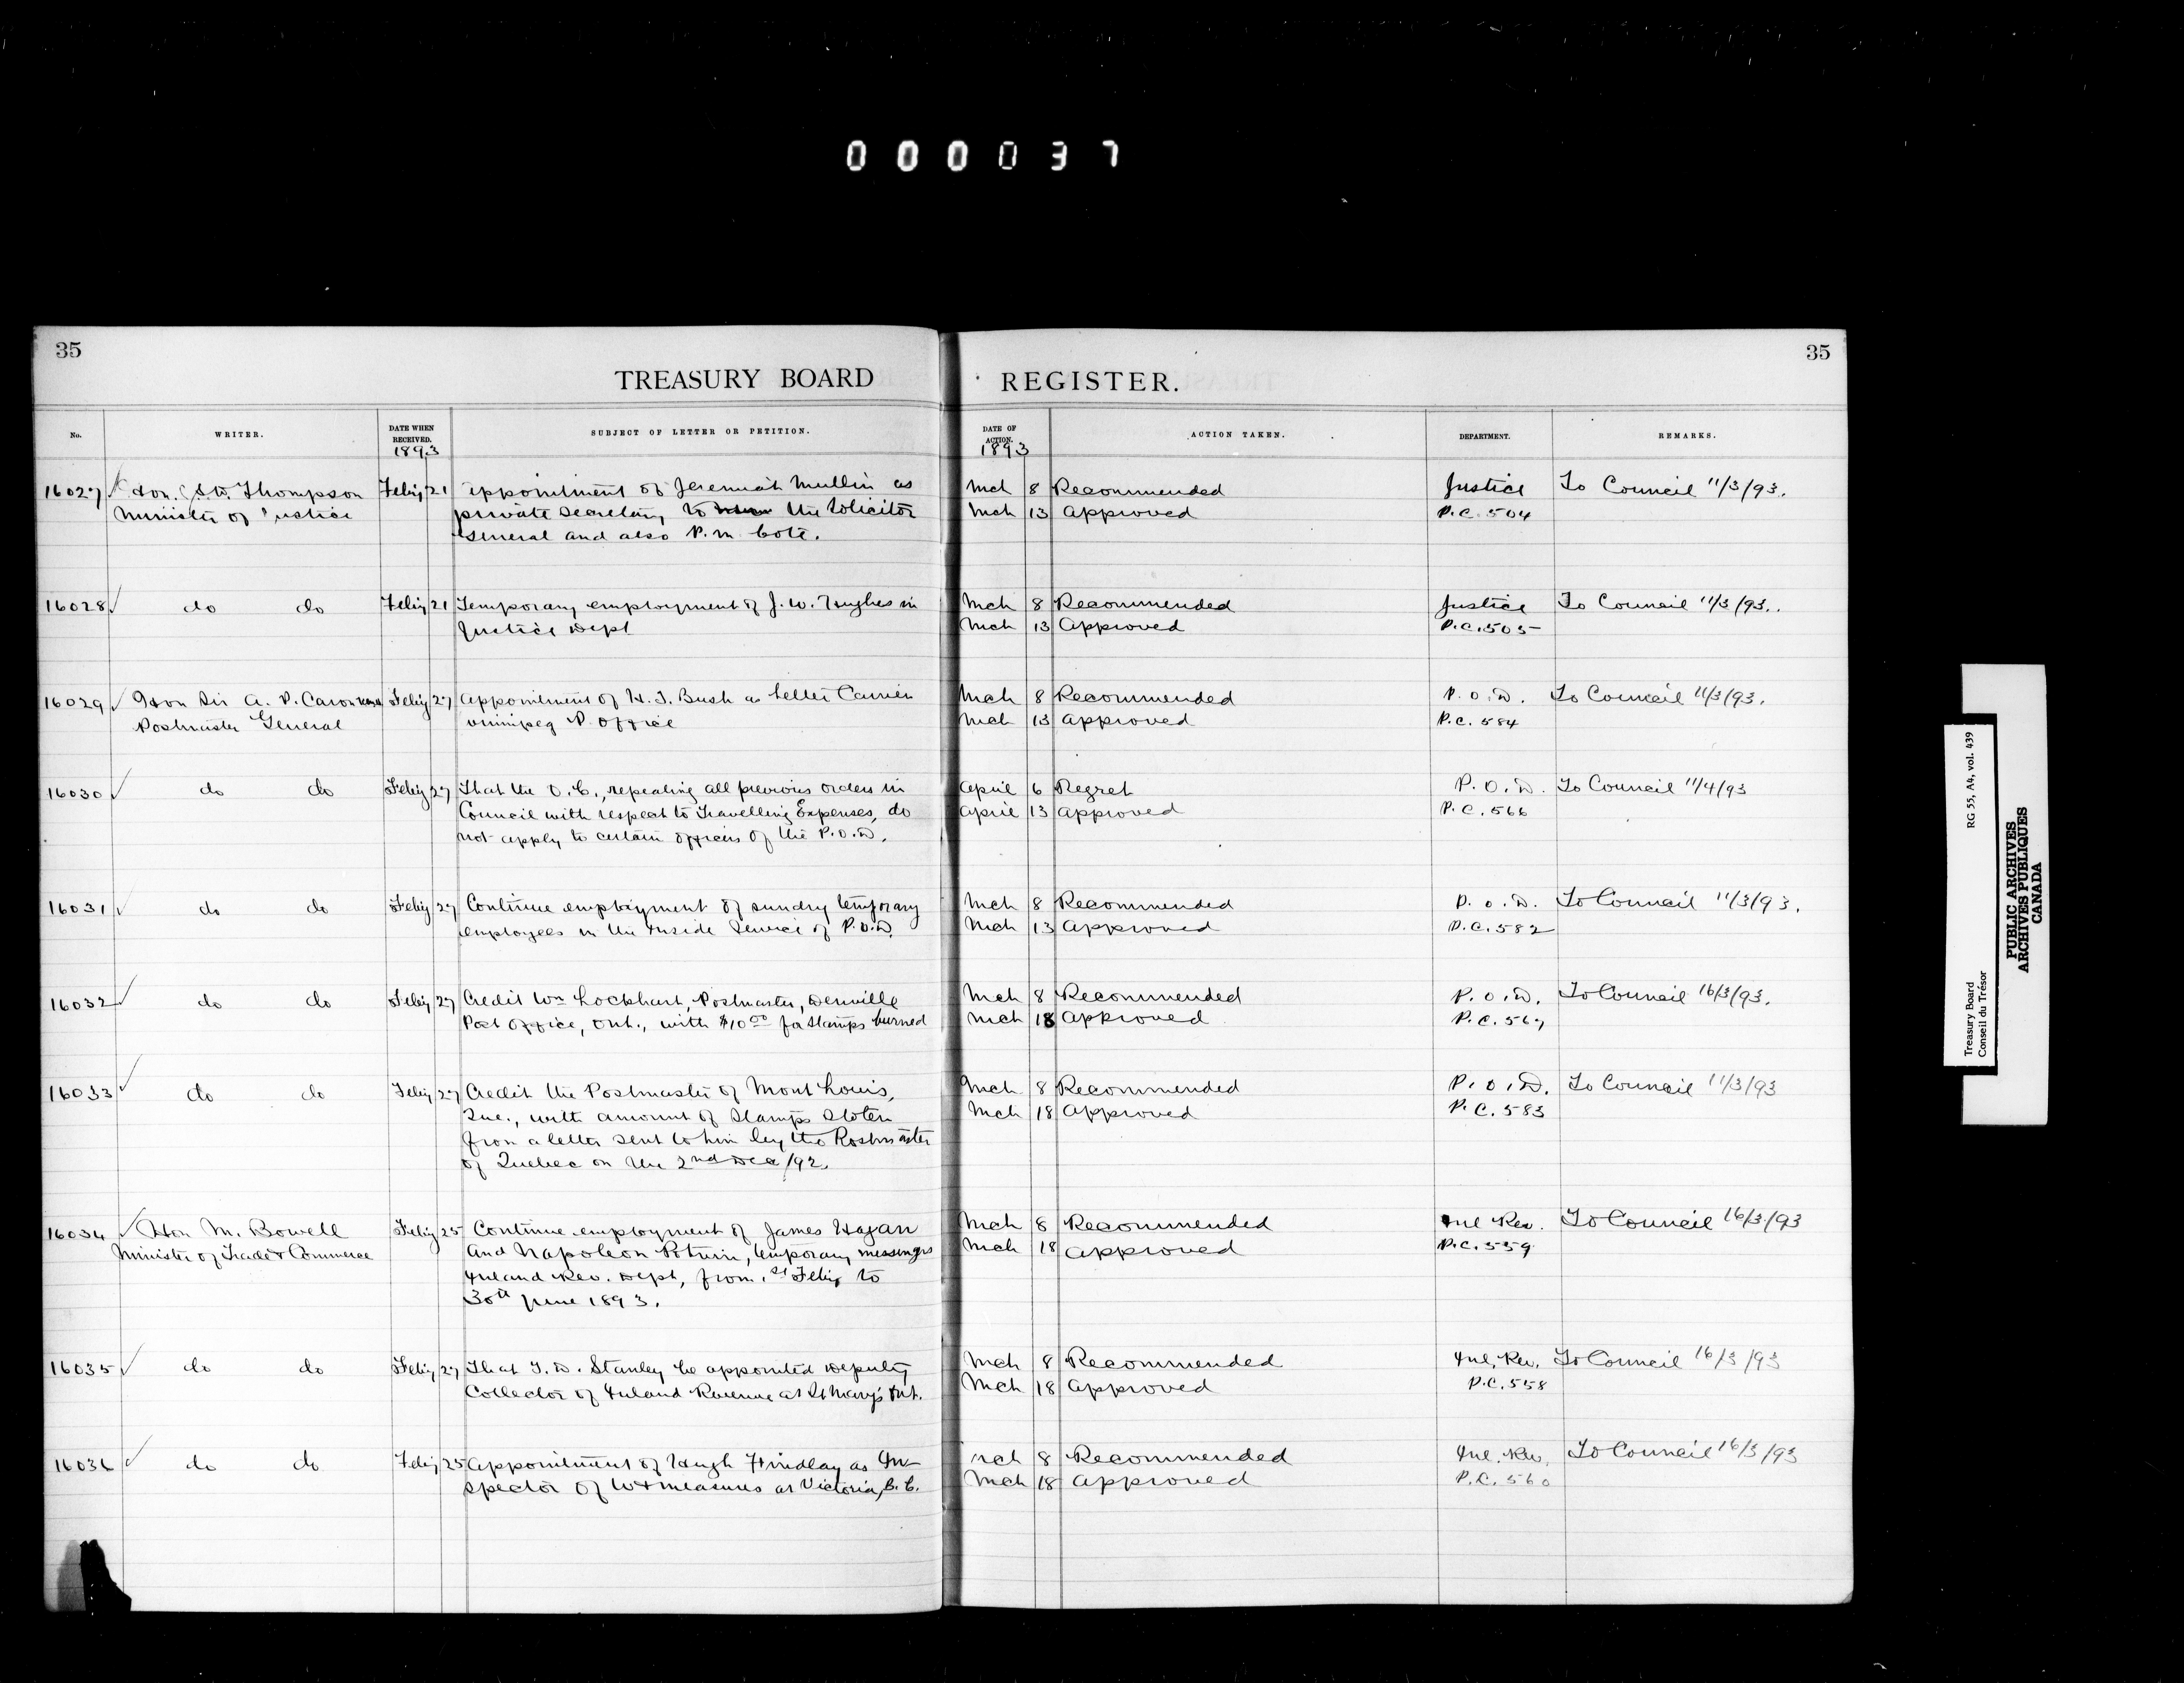 000037
35
35
TREASURY BOARD REGISTER.
No.
WRITER.
DATE WHEN RECEIVED.
1893
SUBJECT OF LETTER OR PETITION.
DATE OF ACTION.
1893
ACTION TAKEN.
DEPARTMENT.
REMARKS.
16027 Hon. Thompson Feby 21 appointment of Jeremiah Mullin as Mch 8 Recommended Justice To Council 11/3/93.
Minister of Justice private secretary to the Solicitor Mch 13 approved P.C. 504
General and also P. M. Coté.
16028 do do Feby 21 Temporary employment of J. W. Hughes in Mch 8 Recommended Justice To Council 11/3/93.
Justice Dept Mch 13 approved P.C. 505
16029 Hon Sir A. P. Caron Feby 27 appointment of H. J. Bush as Letter Carrier Mch 8 Recommended P.O.D. To Council 11/3/93.
Postmaster General Winnipeg P. Office Mch 13 approved P.C. 584
16030 do do Feby 27 That the O.C., repealing all previous orders in April 6 Regret P.O.D. To Council 11/4/93
Council with respect to Travelling Expenses, do April 13 approved P.C. 566
not apply to certain officers of the P.O.D.
16031 do do Feby 27 Continue employment of sundry temporary Mch 8 Recommended P.O.D. To Council 11/3/93.
employees in the Inside Service of P.O.D. Mch 13 approved P.C. 582
16032 do do Feby 27 Credit Wm Lockhart, Postmaster, Mch 8 Recommended P.O.D. To Council 16/3/93.
Post Office, Ont., with $10 00 for Stamps burned Mch 18 approved P.C. 567
16033 do do Feby 27 Credit the Postmaster of Mont Louis, Mch 8 Recommended P.O.D. To Council 11/3/93
Que., with amount of Stamps Stolen Mch 18 approved P.C. 583
from a letter sent to him by the Postmaster
of Quebec on the 2nd Dec/92.
16034 Hon M. Bowell Feby 25 Continue employment of James Hagan Mch 8 Recommended Inl Rev. To Council 16/3/93
Minister of Trade & Commerce and Napoleon Potvin, temporary messengers Mch 18 approved P.C. 559
Inland Rev. Dept, from 1st Feby to
30th June 1893.
16035 do do Feby 27 That T. D. Stanley be appointed Deputy Mch 8 Recommended Inl. Rev. To Council 16/3/93
Collector of Inland Revenue at St Mary's Ont. Mch 18 approved P.C. 558
16036 do do Feby 25 Appointment of Hugh Findlay as In- Mch 8 Recommended Inl. Rev. To Council 16/3/93
spector of W & measures at Victoria, B.C. Mch 18 approved P.C. 560
RG 55, A4, vol. 439
Treasury Board
Conseil du Trésor
PUBLIC ARCHIVES
ARCHIVES PUBLIQUES
CANADA